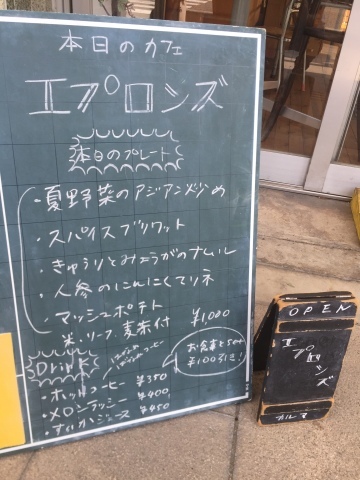 本日のカフェ
エプロンズ
本日のプレート
・夏野菜のアジアン炒め
・スパイスブリワット
・きゅうりとみょうがのナムル
・人参のにんにくマリネ
・マッシュポテト
米・スープ・麦茶付 ¥1,000
Drink
お食事とセットで
¥100引き!
・ホットコーヒー ¥350
・メロンラッシー ¥400
・すいかジュース ¥450
OPEN
エプロンズ